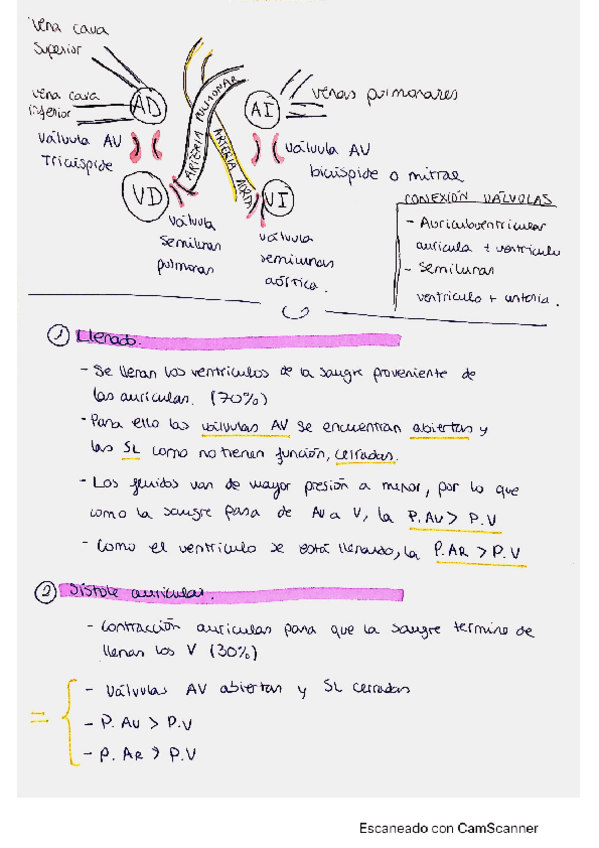 Vena cava
Superior
vena cava
inferior
AD
ARTERIA PULMONAR
ARTERIA AORTA
AI
venas pulmonares
Válvula AV
Tricúspide
válvula AV
bicúspide o mitral
VD
VI
válvula
semilunar
pulmonar
válvula
semilunar
aórtica.
CONEXIÓN VÁLVULAS
- Auriculoventricular
aurícula + ventrículo
- Semilunar
ventrículo + arteria.
1 Llenado.
- Se llenan los ventrículos de la sangre proveniente de
las aurículas. (70%)
- Para ello las válvulas AV se encuentran abiertas y
las SL como no tienen función, cerradas.
- Los fluidos van de mayor presión a menor, por lo que
como la sangre pasa de Au a V, la P.Au > P.V
- Como el ventrículo se está llenando, la P.AR > P.V
2 Sístole auricular.
- Contracción auricular para que la sangre termine de
llenar los V (30%)
= { - Válvulas AV abiertas y SL cerradas
- P. Au > P.V
- P. AR > P.V
Escaneado con CamScanner